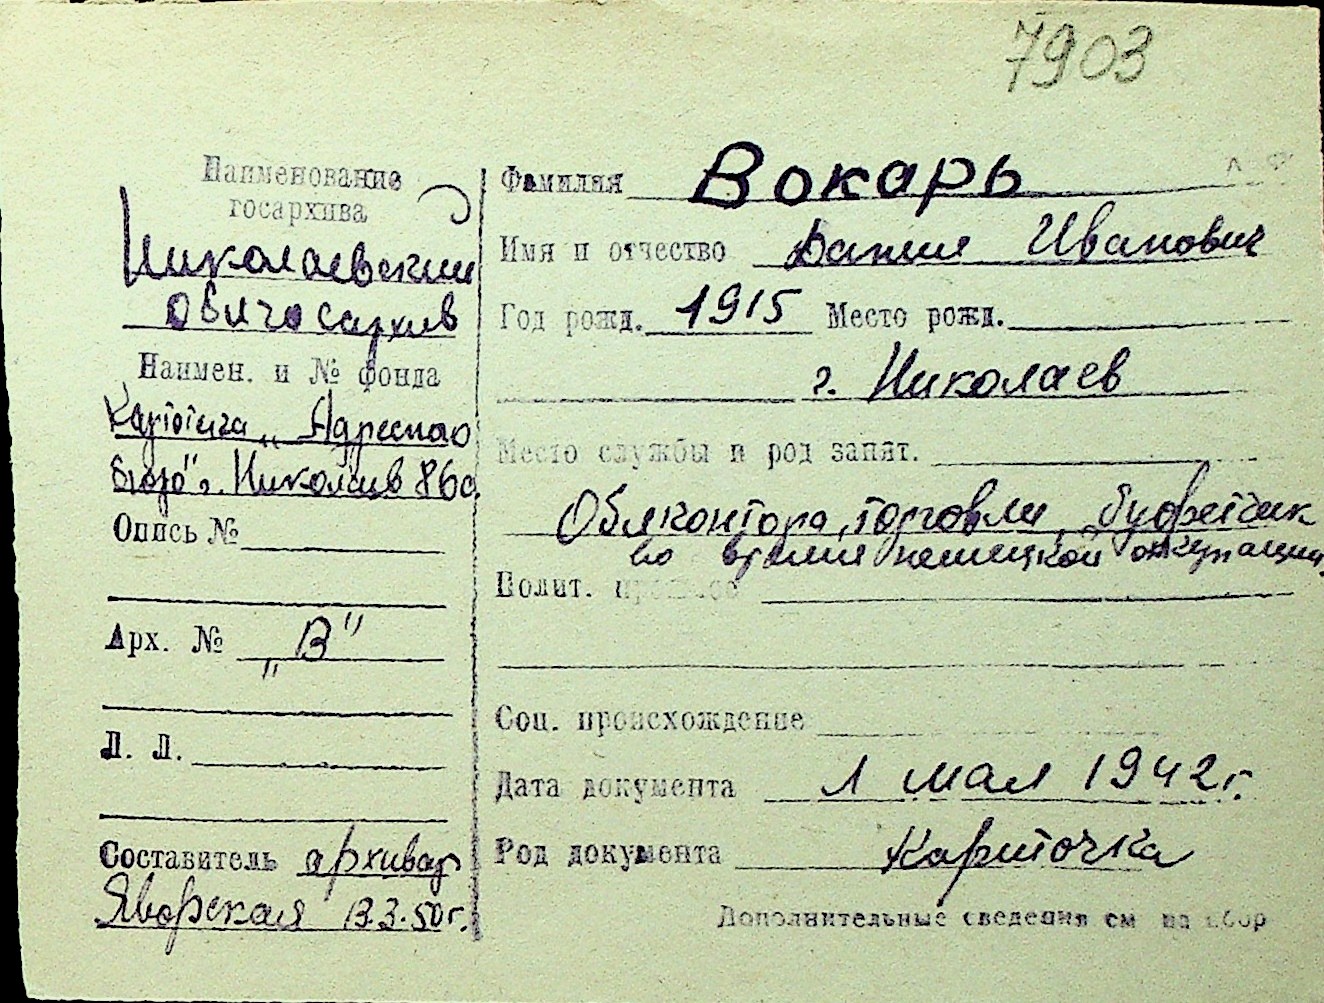 7903
Наименование
госархива
Николаевский
облгосархив
Наимен. и № фонда
Картотека „Адресного
бюро" г. Николаев
Опись №
Арх. № „В"
Л. Л.
Составитель архивар
Яворская 13.3.50 г.
Фамилия Вокарь
Имя и отчество Данил Иванович
Год рожд. 1915 Место рожд.
г. Николаев
Место службы и род занят.
Облконтора торговли, буфетчик
во время немецкой оккупации
Полит.
Соц. происхождение
Дата документа 1 мая 1942 г.
Род документа Карточка
Дополнительные сведения см на обор